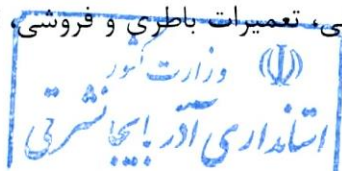 ی، تعمیرات باطری و فروشی،
وزارت کشور
استانداری آذربایجانشرقی